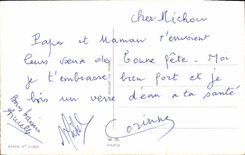 Cher Michou
Papa et Maman t'envoient
leurs vœux de bonne fête. Moi
je t'embrasse bien fort et je
bois un verre d'eau à ta santé
Corinne
PARIS